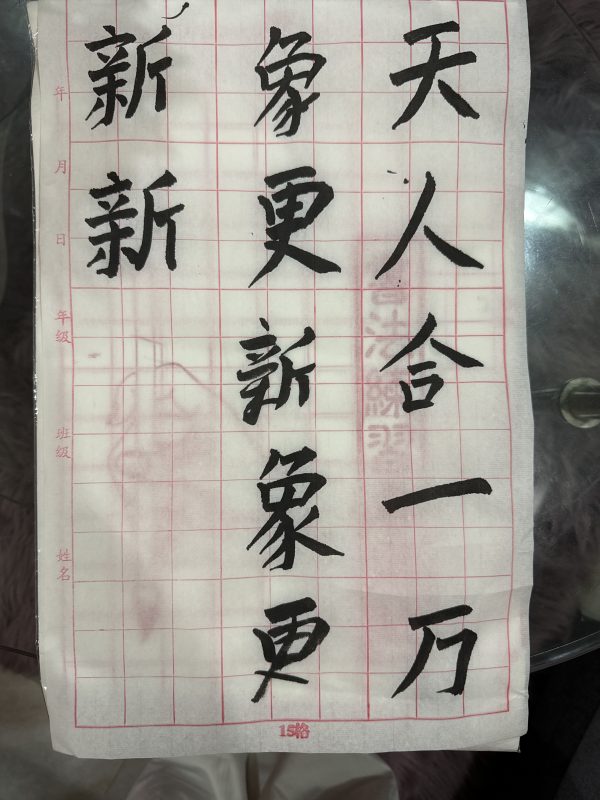 天人合一万
象更新象更
新新
年
月
日
年级
班级
姓名
书法練習
15格